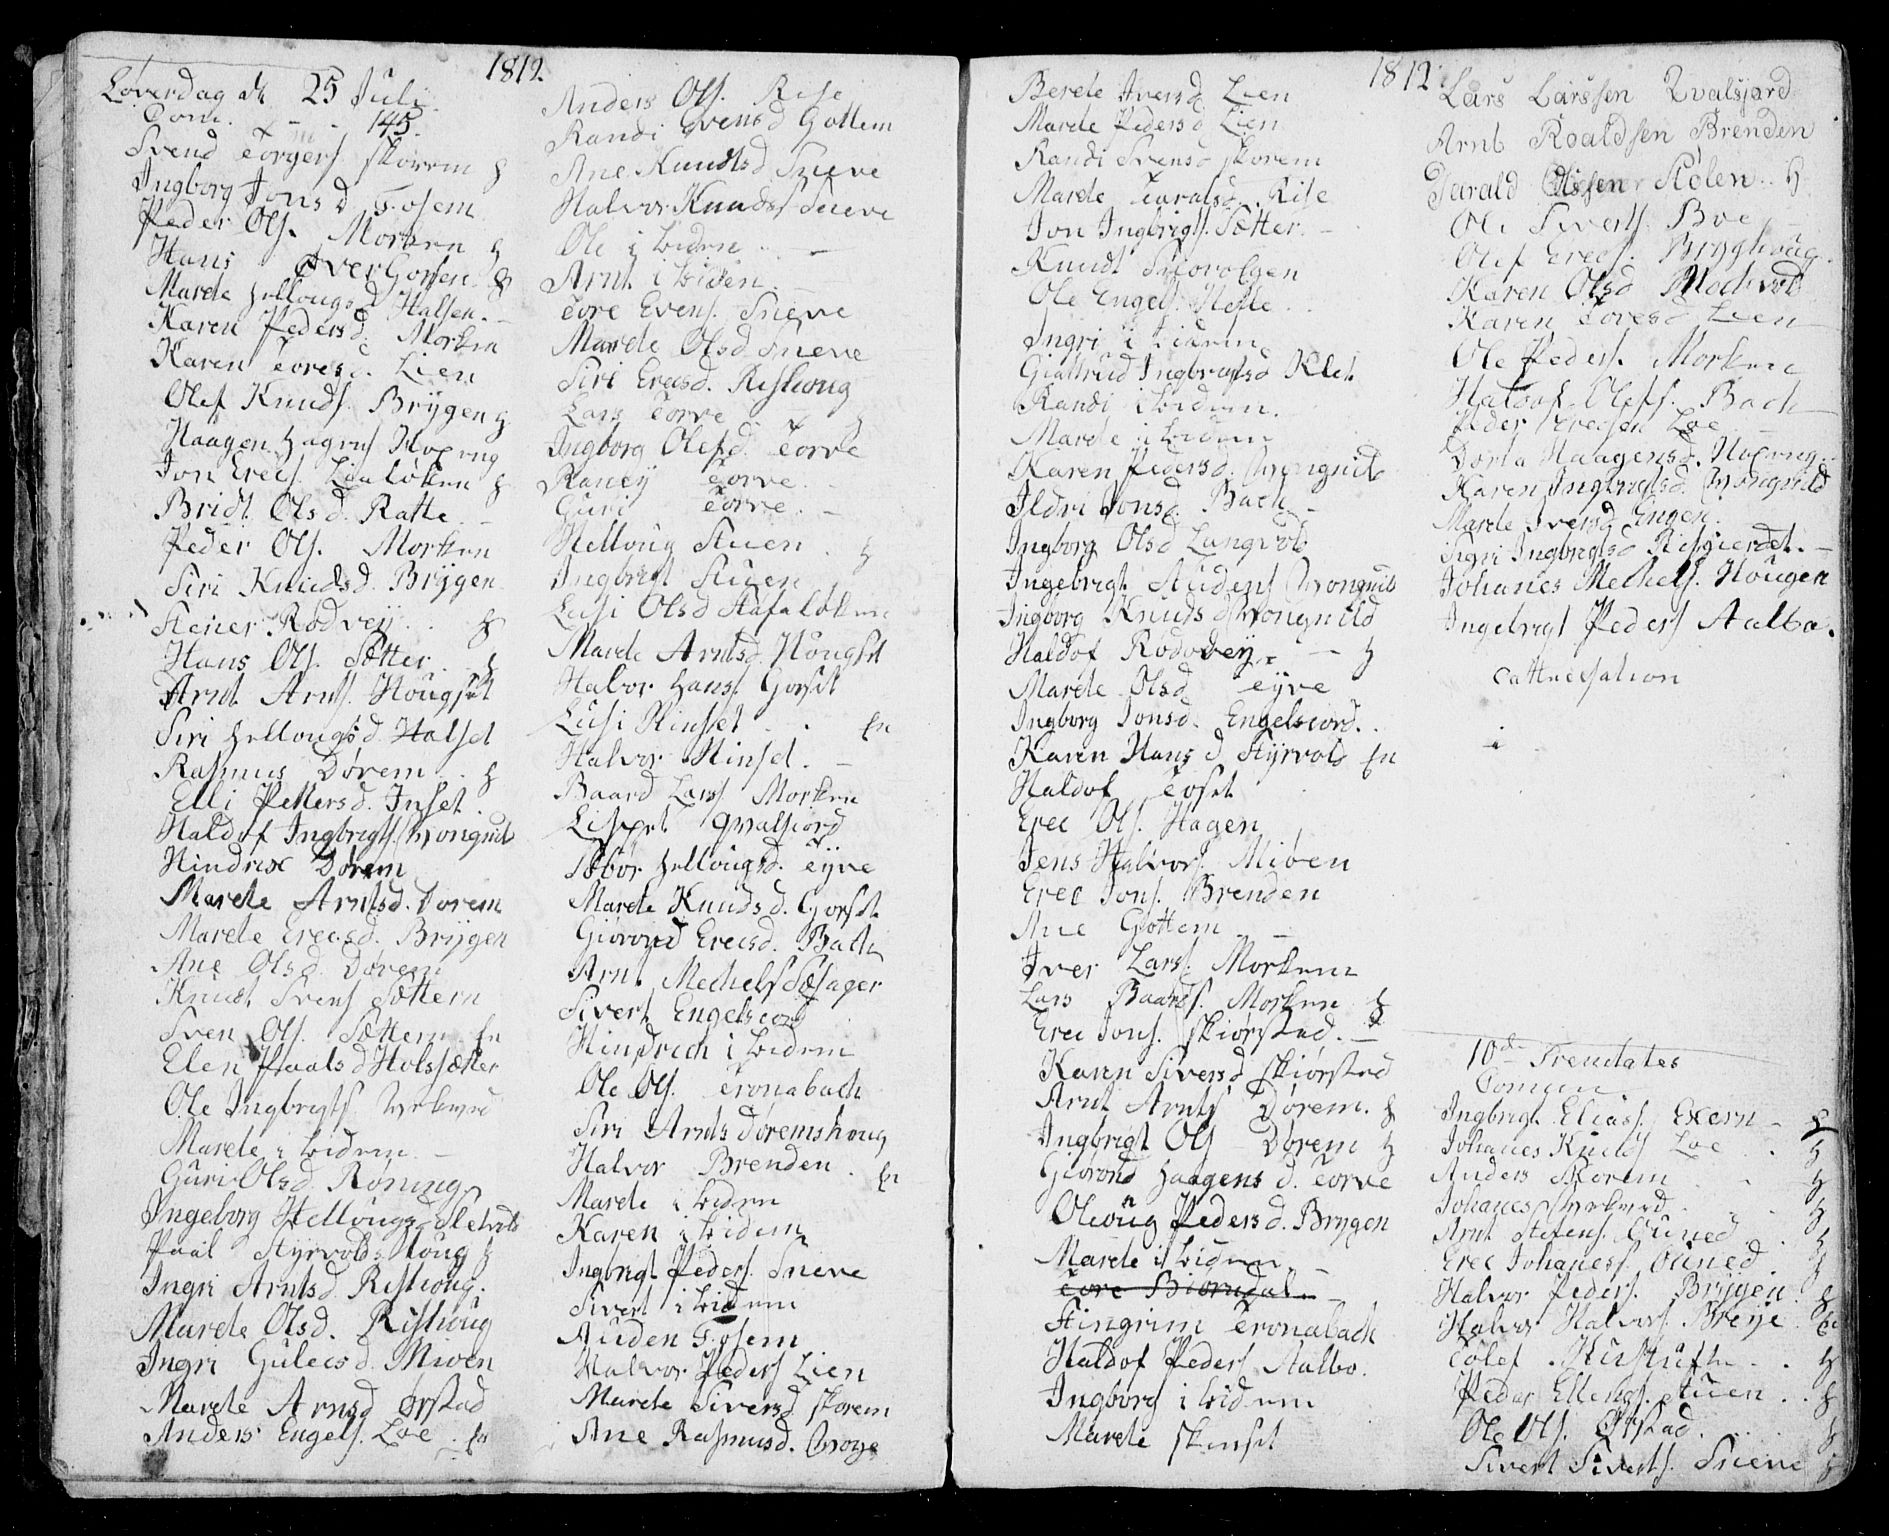 1812.
Løverdag d 25 Juli
Com. - - 145.
Svend Torgers. Skorem H
Ingborg Jonsd. Fosem
Peder Ols. Morken H
Hans Iver Gorsen. H
Marete Hellougsd Halsen. -
Karen Pedersd. Morken
Karen Toresd. Lien
Olef Knuds. Brygen H
Haagen Hagens
Jon Erecs. Lialøken H
Bridt Olsd. Ratte -
Peder Ols. Morken
Siri Knudsd. Brygen
Stener Rodvey . . H
Hans Ols. Sætter. - H
Arnt Arnts. Hougset
Siri Hellougsd. Halset
Rasmus Dørem . . H
Elli Pettersd. Inset.
Haldof Ingbrigts. Wongnild
Hindrix Dørem
Marete Arntsd. Dorem
Marete Erecsd. Brygen
Ane Olsd. Dørem
Knudt Svens Sættern
Sven Ols. Sættern En
Elen Paalsd Holssætter
Ole Ingbrigts
Marete i bidem. -
Guri Olsd. Røning
Ingeborg Hellougsd. Sletvold
Paal Styrvoldshoug H
Ingri Arntsd. Risthoug.
Marete Olsd. Risthoug
Ingri Gulecsd. Mioen
Marete Arnsd Ørstad
Anders Engels. Loe. En
Anders Ols. Rise
Randi Evensd Gottem
Ane Knudtsd Sneve
Halvor Knuds Sneve
Ole i bidem . -
Arnt i bidem. -
Tore Evens. Sneve
Marete Olsd Sneve
Siri Erecsd. Risthoug
Lars Torve - H
Ingborg Olefsd. Torve
Raney Torve. -
Guri Torve. -
Helloug Stuen . H
Ingbrigt Stuen
Lusi Olsd Stafaløken
Marete Arntsd. Hougset
Halvor Hans. Gorset
Lusi Rinset . . En
Halvor Rinset. -
Baard Lars Morken
Lispet Qvalsiord
Sebor Hellougsd. Eyve
Marete Knudsd. Gorset
Giovond Erecsd. Bach
Arnt Mechels Sæsager
Sivert Engelsiord
Hindrich i bidem
Ole Ols. Tronabach
Siri Arnts Døremshoug
Halvor Brenden . En
Marete i bidem
Karen i bidem
Ingbrigt Peders. Sneve
Sivert i bidem
Auden Fosem
Halvor Peders Lien
Marete Siversd Skorem
Ane Rasmusd.
1812.
Berete Iversd. Lien
Marete Pedersd Lien
Randi Svensd Skorem
Marete Taralsd. Rise
Jon Ingbrigts. Sætter. -
Knudt
Ole Engels. Hofte . .
Ingri i bidem
Giøttrud Ingbrigtsd Klet
Randi i bidem.
Marete i bidem
Karen Pedersd. Wongnild
Ildri Jonsd. Bach -
Ingborg Olsd Langvold
Ingebrigt Audens Wongnild
Ingborg Knudsd Wongnild
Haldof Rodovey. - H
Marete Olsd Eyve
Ingborg Jonsd. Engelsiord. .
Karen Hansd Styrvold En
Haldof Toset
Erec Ols. Hagen
Jens Halvors. Mioen
Erec Jons. Brenden
Ane Gottem -
Iver Lars. Morken
Lars Baards. Morken H
Erec Jons. Skiørstad. -
Karen Siversd Skiørstad
Arnt Arnts Dørem. H
Ingbrigt Ols Dørem H
Giorond Haagensd. Torve
Oloug Pedersd. Brygen
Marete i bidem -
Tore Biørndal.
Stingrim Tronabach
Haldof Peders Aalbo.
Ingborg i bidem
Marete Skinset
Lars Larssen Qvalsjord
Arnt Roaldsen Brenden
Tarald Olssen Stølen. . H
Ole Siverts. Boe
Olef Erecs. Bryghoug.
Karen Olsd Mochvold
Karen Toresd Lien
Ole Peders. Morken
Haldof Olefs. Bach
Peder Erecsen Loe -
Dorta Haagensd.
Karen Ingbrigtsd. Wongnild
Marete Iversd Engen
Ingri Ingbrigtsd Risgierdet. -
Johanes Mechels. Hougen
Ingebrigt Peders Aalbo.
Cathecisation
10de Trenitates
Comun
Ingbrigt Elias. Exern - H
Johanes Knuds Loe . H
Anders Storem . - H
Johanes . . H
Arnt Stefens. Ouned . H
Erec Johaness. Ouned . H
Halvor Peders. Brygen. H
Halvor Halvors. Breye En
Tolef . . H
Peder Ellengs. Stuen . . H
Ole Ols. Ørstad . . . . H
Sivert Siverts. Sneve H